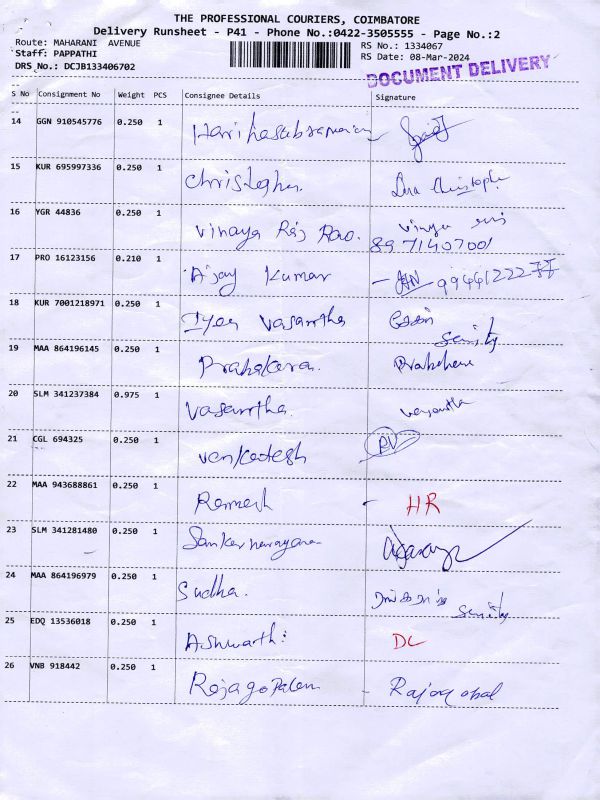 THE PROFESSIONAL COURIERS, COIMBATORE
Delivery Runsheet - P41 - Phone No.:0422-3505555 - Page No.:2
Route: MAHARANI AVENUE
RS No.: 1334067
Staff: PAPPATHI
RS Date: 08-Mar-2024
DRS No.: DCJB133406702
DOCUMENT DELIVERY
S No Consignment No Weight PCS Consignee Details Signature
14 GGN 910545776 0.250 1 Harihasubramanian
15 KUR 695997336 0.250 1 Christopher Christopher
16 YGR 44836 0.250 1 Vinaya Raj Rao.
8971407001
17 PRO 16123156 0.210 1 Ajay Kumar
18 KUR 7001218971 0.250 1 Iyer Vasantha
Security
19 MAA 864196145 0.250 1 Prabakara.
20 SLM 341237384 0.975 1 Vasantha. Vasantha
21 CGL 694325 0.250 1 Venkatesh RV
22 MAA 943688861 0.250 1 Ramesh - HR
23 SLM 341281480 0.250 1 Sankarnarayana
24 MAA 864196979 0.250 1 Sudha.
Security
25 EDQ 13536018 0.250 1 Ashwath: DC
26 VNB 918442 0.250 1 Rajagopalan - Rajagopal